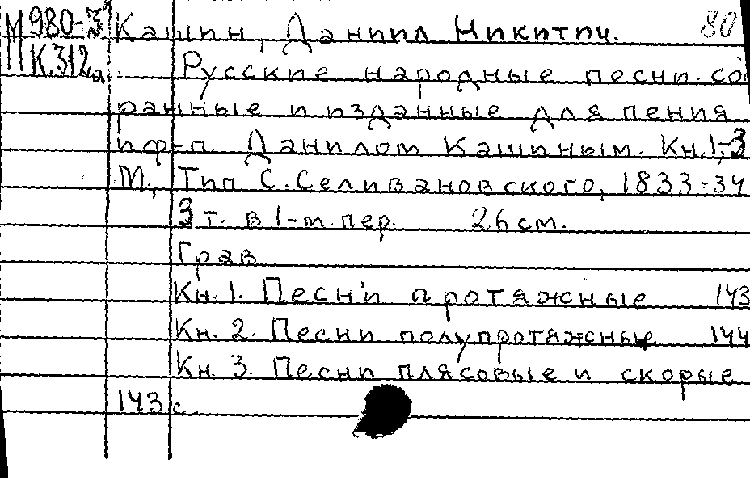 М 980-3 Кашин, Даниил Никитич. 80
К.312а Русские народные песни. со
ранные и изданные для пения
и ф-п. Данилом Кашиным. Кн. 1-3
М., Тип С. Селивановского, 1833-34
3 т. в 1-м пер. 26 см.
Грав
Кн. 1. Песни протяжные 143
Кн. 2. Песни полупротяжные 144
Кн. 3. Песни плясовые и скорые
143 с.